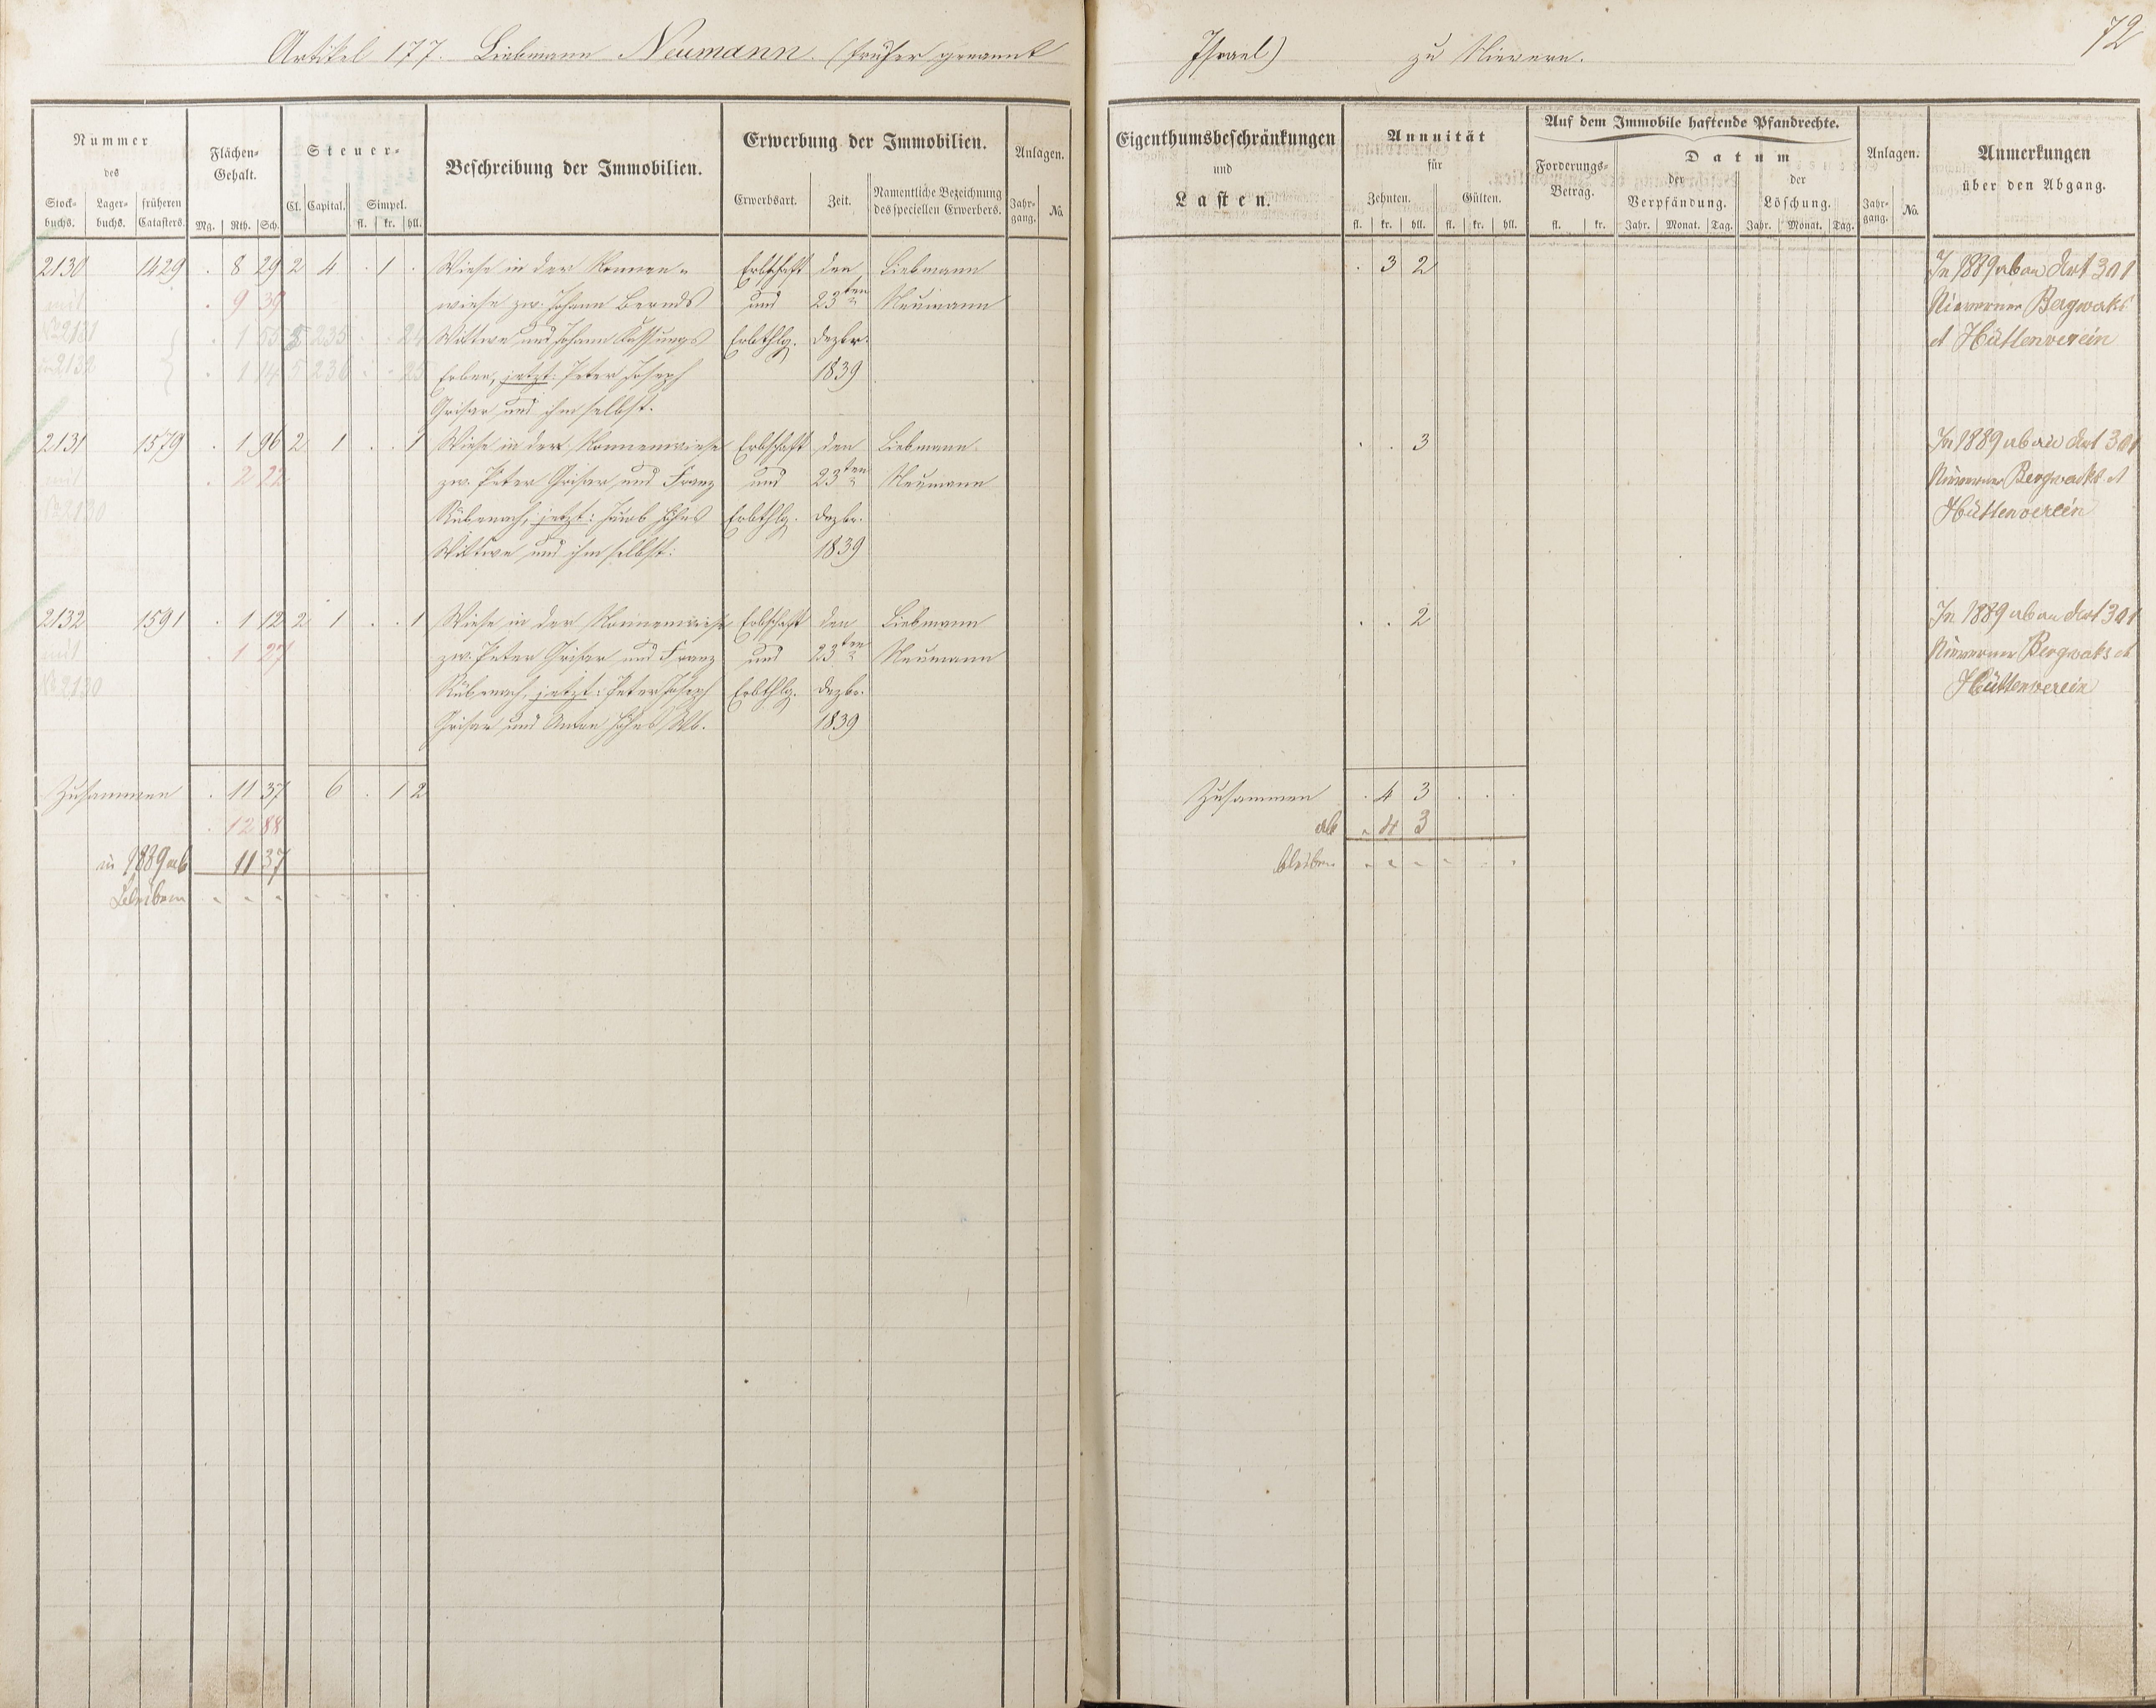 72
Artikel 177. Liebmann Neumann. (früher genannt Israel) zu Nievern.
Nummer des
Stock-buchs. Lager-buchs. früheren Catasters.
Flächen-Gehalt.
Mg. Rth. Sch.
Steuer-
Cl. Capital. Simpel.
fl. kr. hll.
Beschreibung der Immobilien.
Erwerbung der Immobilien.
Erwerbsart. Zeit. Namentliche Bezeichnung des speciellen Erwerbers.
Anlagen.
Jahr-gang. No.
Eigenthumsbeschränkungen und Lasten.
Annuität für
Zehnten. Gülten.
fl. kr. hll. fl. kr. hll.
Auf dem Immobile haftende Pfandrechte.
Forderungs-Betrag.
fl. kr.
Datum
der Verpfändung. der Löschung.
Jahr. Monat. Tag. Jahr. Monat. Tag.
Anlagen.
Jahr-gang. No.
Anmerkungen über den Abgang.
2130 1429 . 8 29 2 4 . 1 . Wiese in der Nonnen- Erbschaft den Liebmann . 3 2 In 1889 ab an Art 301
mit . 9 39 wiese zw. Johann Bernds und 23ten Neumann Nieverner Bergwaks
No 2131 . 1 55 5 235 . . 24 Wittwe und Johann Erbthlg. Dezbr. et Hüttenverein
2132 . 1 14 5 236 . . 25 Erben, jetzt: Peter Joseph 1839
Grisar und ihm selbst.
2131 1579 . 1 96 2 1 . . 1 Wiese in der Nonnenwiese Erbschaft den Liebmann . . 3 In 1889 ab an Art 301
mit . 2 22 zw. Peter Grisar und Franz und 23ten Neumann Nieverner Bergwaks et
No 2130 Kübenach, jetzt: Jacob Höhns Erbthlg. Dezbr. Hüttenverein
Wittwe und ihm selbst: 1839
2132 1591 . 1 12 2 1 . . 1 Wiese in der Nonnenwiese Erbschaft den Liebmann . . 2 In 1889 ab an Art 301
mit . 1 27 zw. Peter Grisar und Franz und 23ten Neumann Nieverner Bergwaks et
No 2130 Kübenach, jetzt: Peter Joseph Erbthlg. Dezbr. Hüttenverein
Grisar und Anton Höhns Wb. 1839
Zusammen . 11 37 6 . 1 2 Zusammen . 4 3 . . .
. 12 88 ab . 4 3
in 1889 ab 11 37 bleiben
bleiben